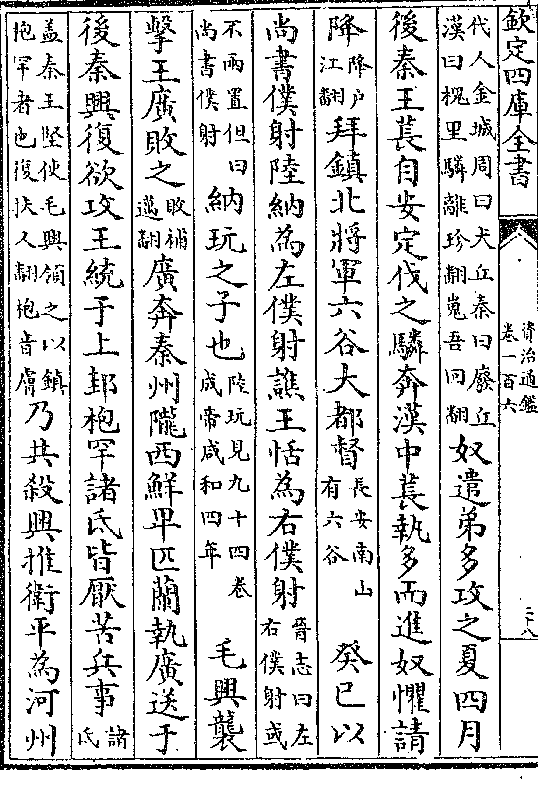 欽定四庫全書
資治通鑑
卷一百六
代人金城周曰犬丘秦曰廢丘
漢曰槐里驎離珍翻嵬吾回翻
奴遣弟多攻之夏四月
後秦王萇自安定伐之驎奔漢中萇執多而進奴懼請
降
降戸
江翻
拜鎮北將軍六谷大都督
長安南山
有六谷
癸巳以
尚書僕射陸納為左僕射譙王恬為右僕射
晉志曰左
右僕射或
不兩置但曰
尚書僕射
納玩之子也
陸玩見九十四卷
成帝咸和四年
毛興襲
擊王廣敗之
敗補
邁翻
廣奔秦州隴西鮮卑匹蘭執廣送于
後秦興復欲攻王統于上邽枹罕諸氐皆厭苦兵事
諸
氐
盖秦王堅使毛興領之以鎮
枹罕者也復扶又翻枹音膚
乃共殺興推衛平為河州